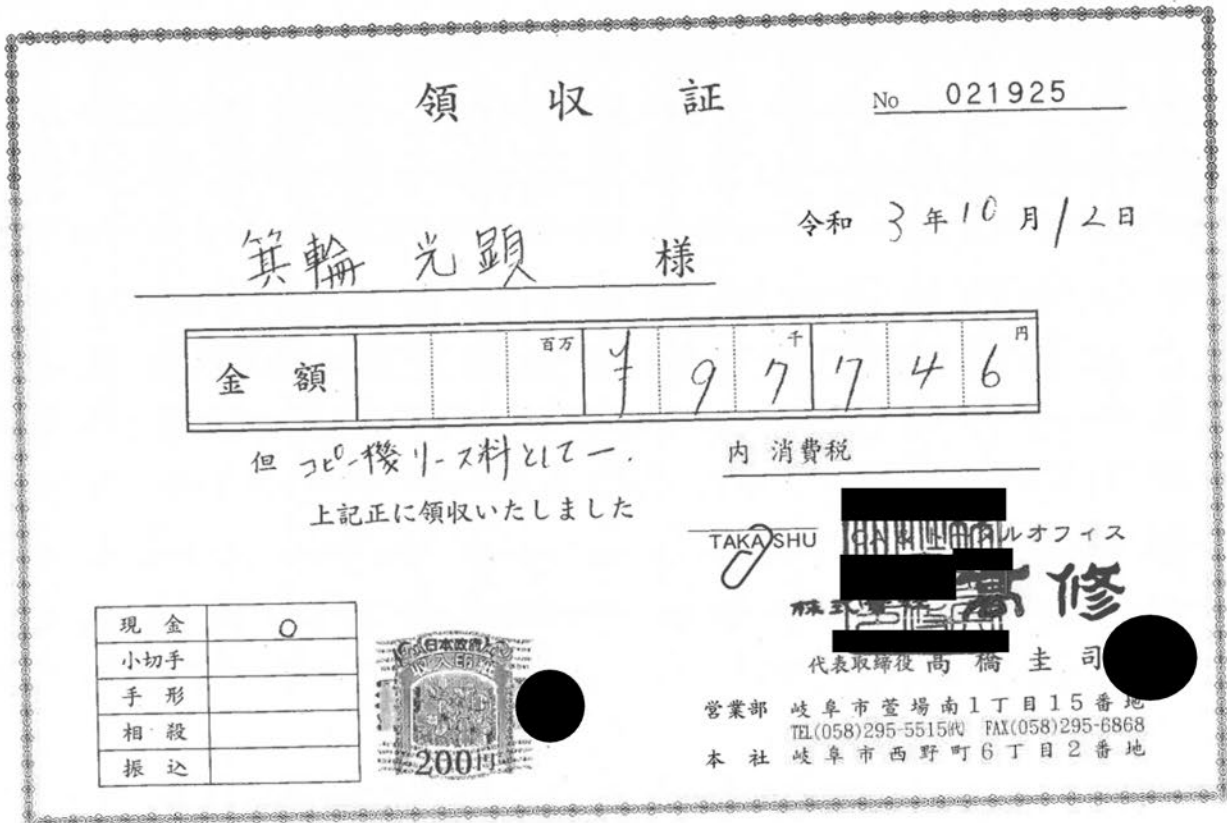 領収証
No 021925
令和 3年10月12日
箕輪 光顕 様
金額 百万 ¥ 9 千 7 7 4 円 6
但 コピー機リース料として一.
内 消費税
上記正に領収いたしました
TAKASHU OA&トータルオフィス
株式会社 髙修
代表取締役 髙橋圭司
現金 ○
小切手
手形
相殺
振込
日本政府
収入印紙
200円
営業部 岐阜市萱場南1丁目15番地
TEL(058)295-5515㈹ FAX(058)295-6868
本社 岐阜市西野町6丁目2番地